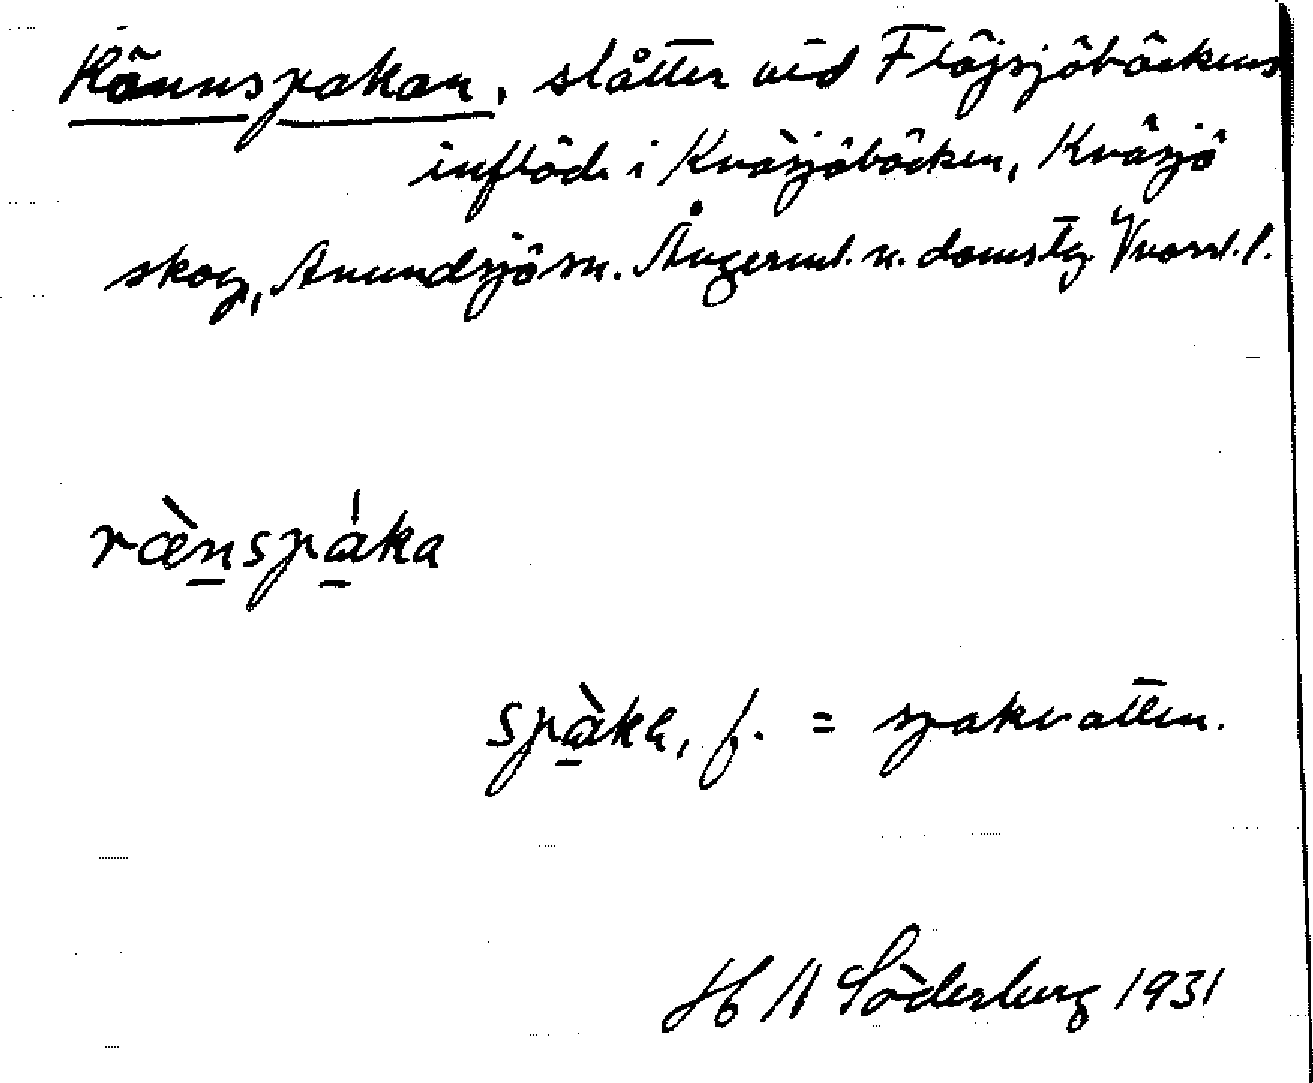 Rännspakan, slåtter vid Flöjsjöbäckens
inflöde i Kväsjöbäcken, Kväsjö
skog, Anundsjö sn. Ångerml. n. domsg.
ræ̀nspáka
spàka, f. = spakvatten.
H N Söderberg 1931